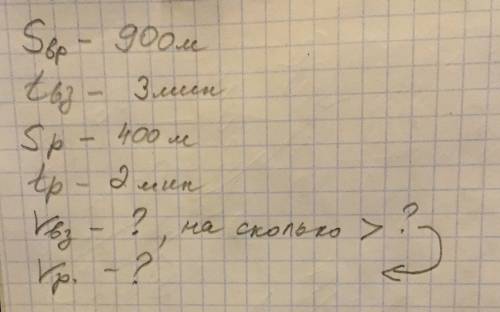 Sвр - 900м
tвз - 3мин
Sр - 400м
tр - 2мин
vвз - ?, на сколько > ?
vр. - ?